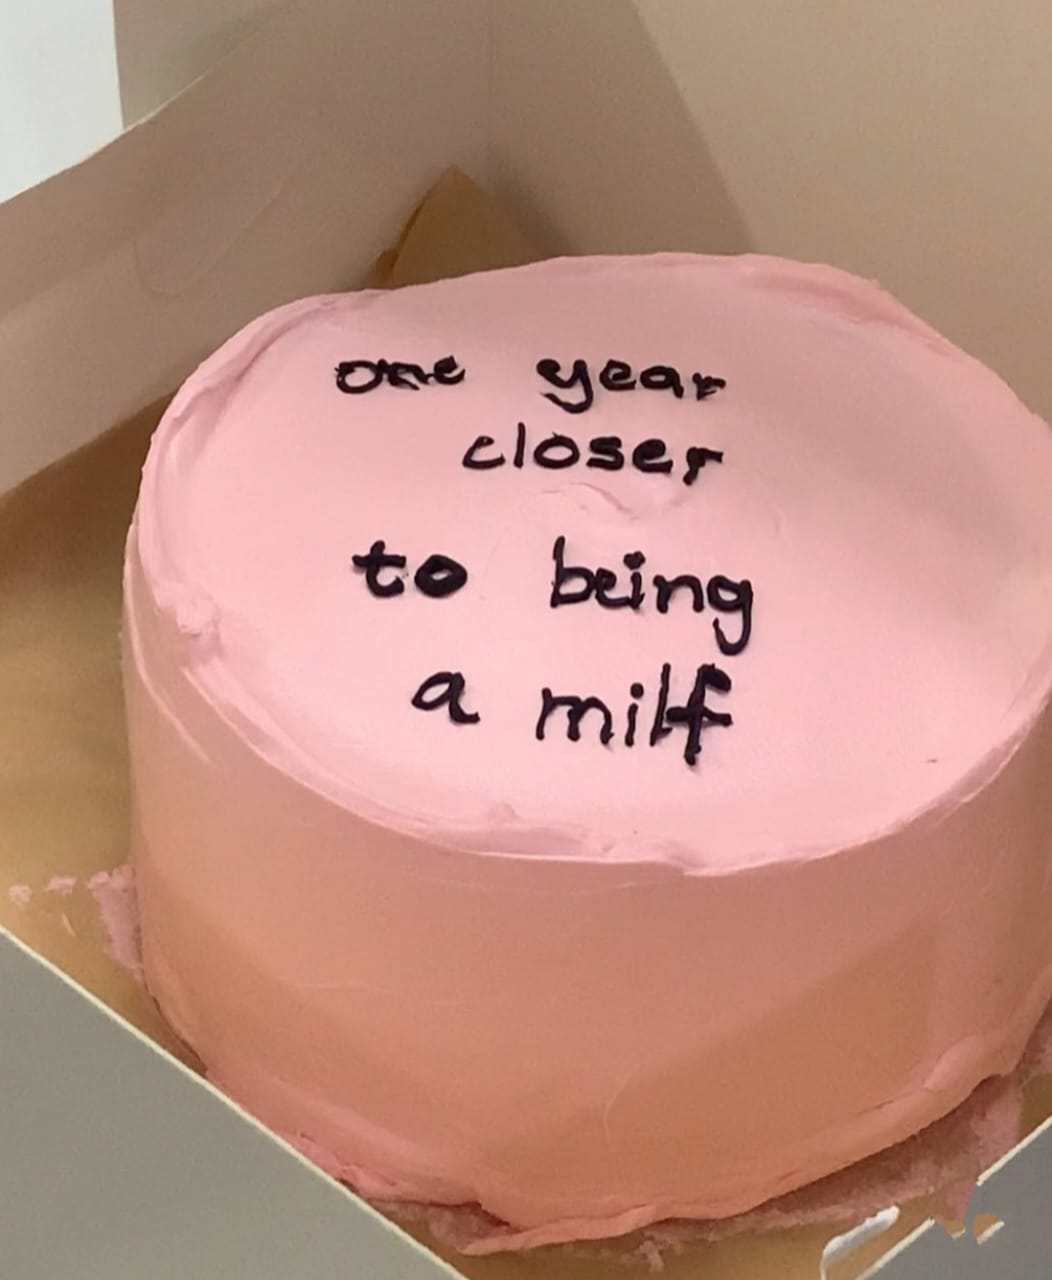 one year
closer
to being
a milf